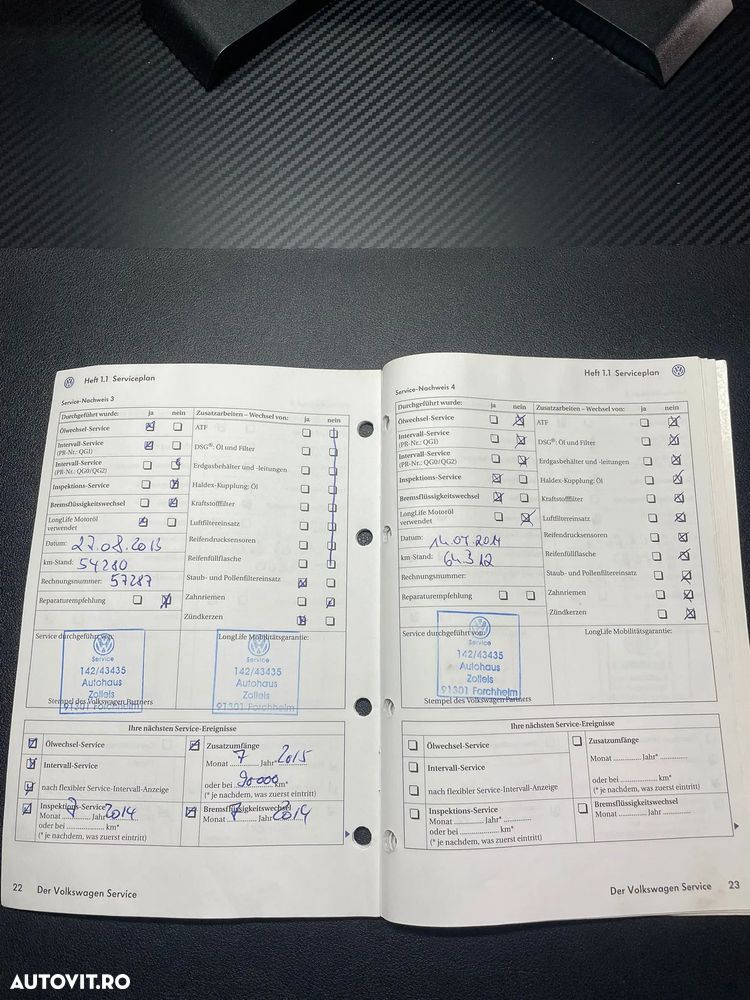 Heft 1.1 Serviceplan
Service-Nachweis 3
Durchgeführt wurde: ja nein
Ölwechsel-Service
Intervall-Service
(PR-Nr.: QG1)
Intervall-Service
(PR-Nr.: QG0/QG2)
Inspektions-Service
Bremsflüssigkeitswechsel
LongLife Motoröl
verwendet
Datum: 27.08.2013
km-Stand: 54280
Rechnungsnummer: 57287
Reparaturempfehlung
Zusatzarbeiten – Wechsel von: ja nein
ATF
DSG®: Öl und Filter
Erdgasbehälter und -leitungen
Haldex-Kupplung: Öl
Kraftstofffilter
Luftfiltereinsatz
Reifendrucksensoren
Reifenfüllflasche
Staub- und Pollenfiltereinsatz
Zahnriemen
Zündkerzen
Service durchgeführt von:
Service
142/43435
Autohaus
Zolleis
91301 Forchheim
Stempel des Volkswagen Partners
LongLife Mobilitätsgarantie:
Service
142/43435
Autohaus
Zolleis
91301 Forchheim
Ihre nächsten Service-Ereignisse
Ölwechsel-Service
Intervall-Service
nach flexibler Service-Intervall-Anzeige
Inspektions-Service
Monat 7 Jahr* 2014
oder bei km*
(* je nachdem, was zuerst eintritt)
Zusatzumfänge
Monat 7 Jahr* 2015
oder bei 90000 km*
(* je nachdem, was zuerst eintritt)
Bremsflüssigkeitswechsel
Monat 7 Jahr 2014
22 Der Volkswagen Service
Heft 1.1 Serviceplan
Service-Nachweis 4
Durchgeführt wurde: ja nein
Ölwechsel-Service
Intervall-Service
(PR-Nr.: QG1)
Intervall-Service
(PR-Nr.: QG0/QG2)
Inspektions-Service
Bremsflüssigkeitswechsel
LongLife Motoröl
verwendet
Datum: 14.07.2014
km-Stand: 64312
Rechnungsnummer:
Reparaturempfehlung
Zusatzarbeiten – Wechsel von: ja nein
ATF
DSG®: Öl und Filter
Erdgasbehälter und -leitungen
Haldex-Kupplung: Öl
Kraftstofffilter
Luftfiltereinsatz
Reifendrucksensoren
Reifenfüllflasche
Staub- und Pollenfiltereinsatz
Zahnriemen
Zündkerzen
Service durchgeführt von:
Service
142/43435
Autohaus
Zolleis
91301 Forchheim
Stempel des Volkswagen Partners
LongLife Mobilitätsgarantie:
Ihre nächsten Service-Ereignisse
Ölwechsel-Service
Intervall-Service
nach flexibler Service-Intervall-Anzeige
Inspektions-Service
Monat Jahr*
oder bei km*
(* je nachdem, was zuerst eintritt)
Zusatzumfänge
Monat Jahr*
oder bei km*
(* je nachdem, was zuerst eintritt)
Bremsflüssigkeitswechsel
Monat Jahr
Der Volkswagen Service 23
AUTOVIT.RO